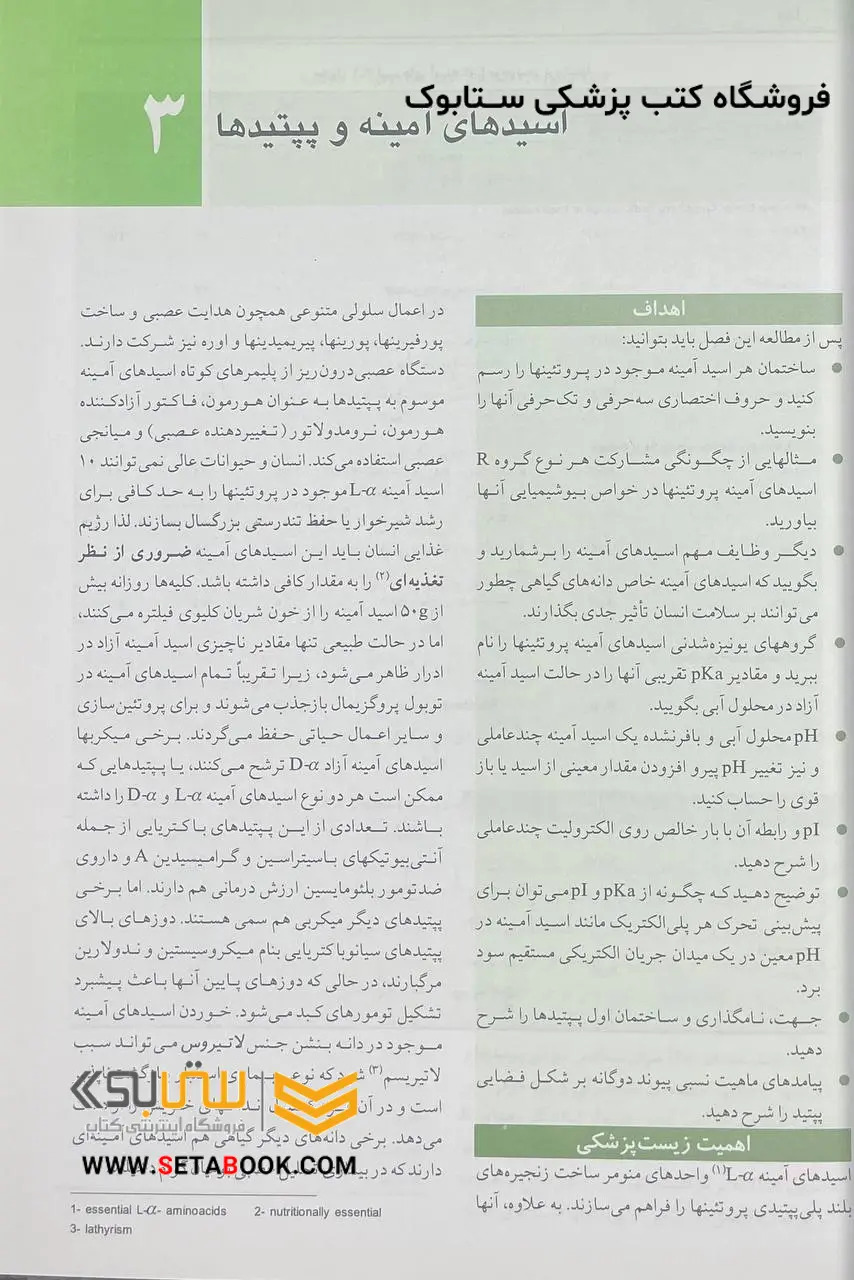 فروشگاه کتب پزشکی ستابوک
۳
اسیدهای آمینه و پپتیدها
اهداف
پس از مطالعه این فصل باید بتوانید:
● ساختمان هر اسید آمینه موجود در پروتئینها را رسم
کنید و حروف اختصاری سه‌حرفی و تک‌حرفی آنها را
بنویسید.
● مثالهایی از چگونگی مشارکت هر نوع گروه R
اسیدهای آمینه پروتئینها در خواص بیوشیمیایی آنها
بیاورید.
● دیگر وظایف مهم اسیدهای آمینه را برشمارید و
بگویید که اسیدهای آمینه خاص دانه‌های گیاهی چطور
می‌توانند بر سلامت انسان تأثیر جدی بگذارند.
● گروههای یونیزه‌شدنی اسیدهای آمینه پروتئینها را نام
ببرید و مقادیر pKa تقریبی آنها را در حالت اسید آمینه
آزاد در محلول آبی بگویید.
● pH محلول آبی و بافرنشده یک اسید آمینه چندعاملی
و نیز تغییر pH پیرو افزودن مقدار معینی از اسید یا باز
قوی را حساب کنید.
● pI و رابطه آن با بار خالص روی الکترولیت چندعاملی
را شرح دهید.
● توضیح دهید که چگونه از pKa و pI می‌توان برای
پیش‌بینی تحرک هر پلی‌الکتریک مانند اسید آمینه در
pH معین در یک میدان جریان الکتریکی مستقیم سود
برد.
● جهت، نامگذاری و ساختمان اول پپتیدها را شرح
دهید.
● پیامدهای ماهیت نسبی پیوند دوگانه بر شکل فضایی
پپتید را شرح دهید.
اهمیت زیست‌پزشکی
اسیدهای آمینه L-α(۱) واحدهای منومر ساخت زنجیره‌های
بلند پلی‌پپتیدی پروتئینها را فراهم می‌سازند. به علاوه، آنها
در اعمال سلولی متنوعی همچون هدایت عصبی و ساخت
پورفیرینها، پورینها، پیریمیدینها و اوره نیز شرکت دارند.
دستگاه عصبی‌درون‌ریز از پلیمرهای کوتاه اسیدهای آمینه
موسوم به پپتیدها به عنوان هورمون، فاکتور آزادکننده
هورمون، نرومدولاتور (تغییردهنده عصبی) و میانجی
عصبی استفاده می‌کند. انسان و حیوانات عالی نمی‌توانند ۱۰
اسید آمینه L-α موجود در پروتئینها را به حد کافی برای
رشد شیرخوار یا حفظ تندرستی بزرگسال بسازند. لذا رژیم
غذایی انسان باید این اسیدهای آمینه ضروری از نظر
تغذیه‌ای(۲) را به مقدار کافی داشته باشد. کلیه‌ها روزانه بیش
از ۵۰g اسید آمینه را از خون شریان کلیوی فیلتره می‌کنند،
اما در حالت طبیعی تنها مقادیر ناچیزی اسید آمینه آزاد در
ادرار ظاهر می‌شود، زیرا تقریباً تمام اسیدهای آمینه در
توبول پروگزیمال بازجذب می‌شوند و برای پروتئین‌سازی
و سایر اعمال حیاتی حفظ می‌گردند. برخی میکربها
اسیدهای آمینه آزاد D-α ترشح می‌کنند، یا پپتیدهایی که
ممکن است هر دو نوع اسیدهای آمینه L-α و D-α را داشته
باشند. تعدادی از این پپتیدهای باکتریایی از جمله
آنتی‌بیوتیکهای باسیتراسین و گرامیسیدین A و داروی
ضدتومور بلئومایسین ارزش درمانی هم دارند. اما برخی
پپتیدهای دیگر میکربی هم سمی هستند. دوزهای بالای
پپتیدهای سیانوباکتریایی بنام میکروسیستین و ندولارین
مرگبارند، در حالی که دوزهای پایین آنها باعث پیشبرد
تشکیل تومورهای کبد می‌شود. خوردن اسیدهای آمینه
موجود در دانه بنشن جنس لاتیروس می‌تواند سبب
لاتیریسم(۳) که
است و در آن
می‌دهد. برخی دانه‌های دیگر گیاهی هم اسیدهای آمینه‌ای
دارند که در
ستابوک
فروشگاه اینترنتی کتاب
WWW.SETABOOK.COM
1- essential L-α- aminoacids 2- nutritionally essential
3- lathyrism